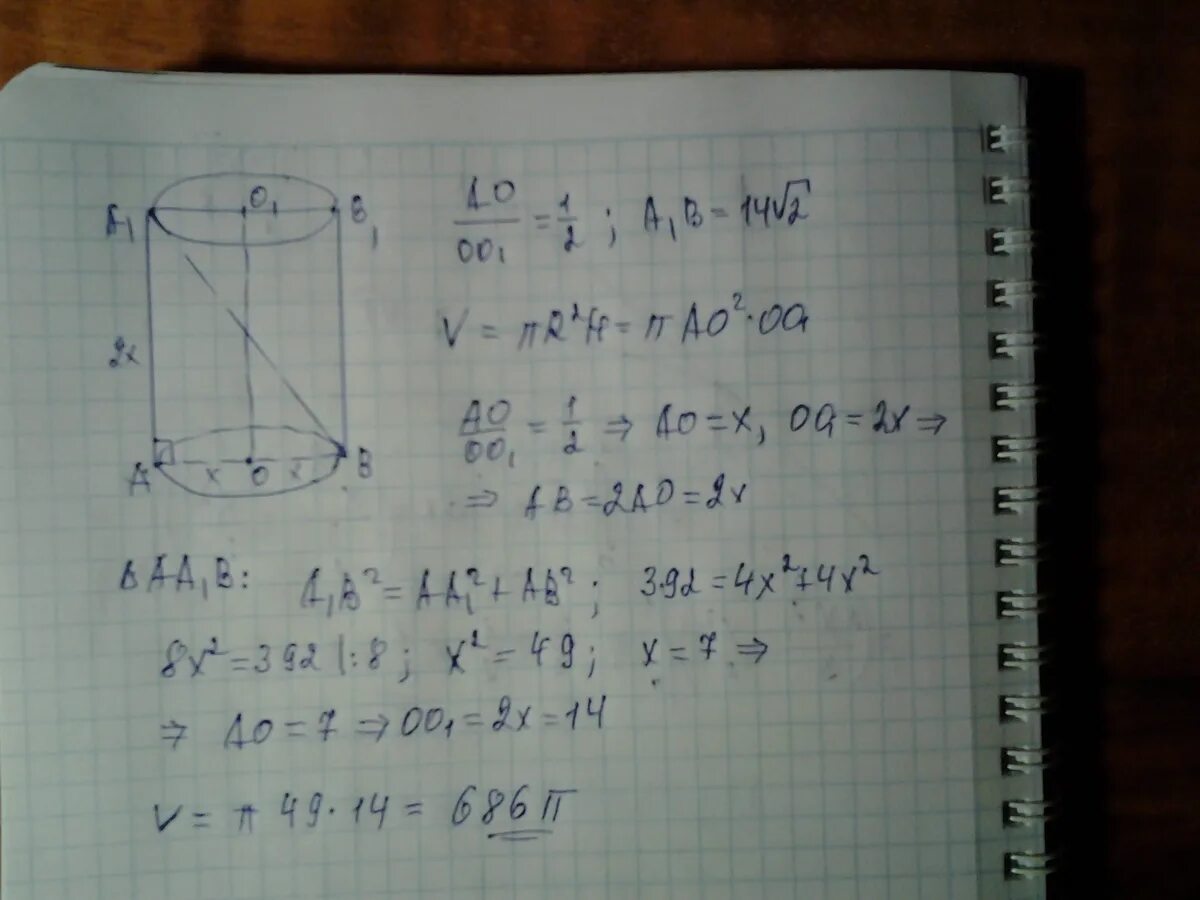 A₁ O₁ B₁
2x
A x O x B
AO/OO₁ = 1/2 ; A₁B = 14√2
V = πR²H = πAO²·OO₁
AO/OO₁ = 1/2 ⇒ AO = x, OO₁ = 2x ⇒
⇒ AB = 2AO = 2x
ΔAA₁B: A₁B² = AA₁² + AB² ; 392 = 4x² + 4x²
8x² = 392 |:8 ; x² = 49 ; x = 7 ⇒
⇒ AO = 7 ⇒ OO₁ = 2x = 14
V = π 49·14 = 686π